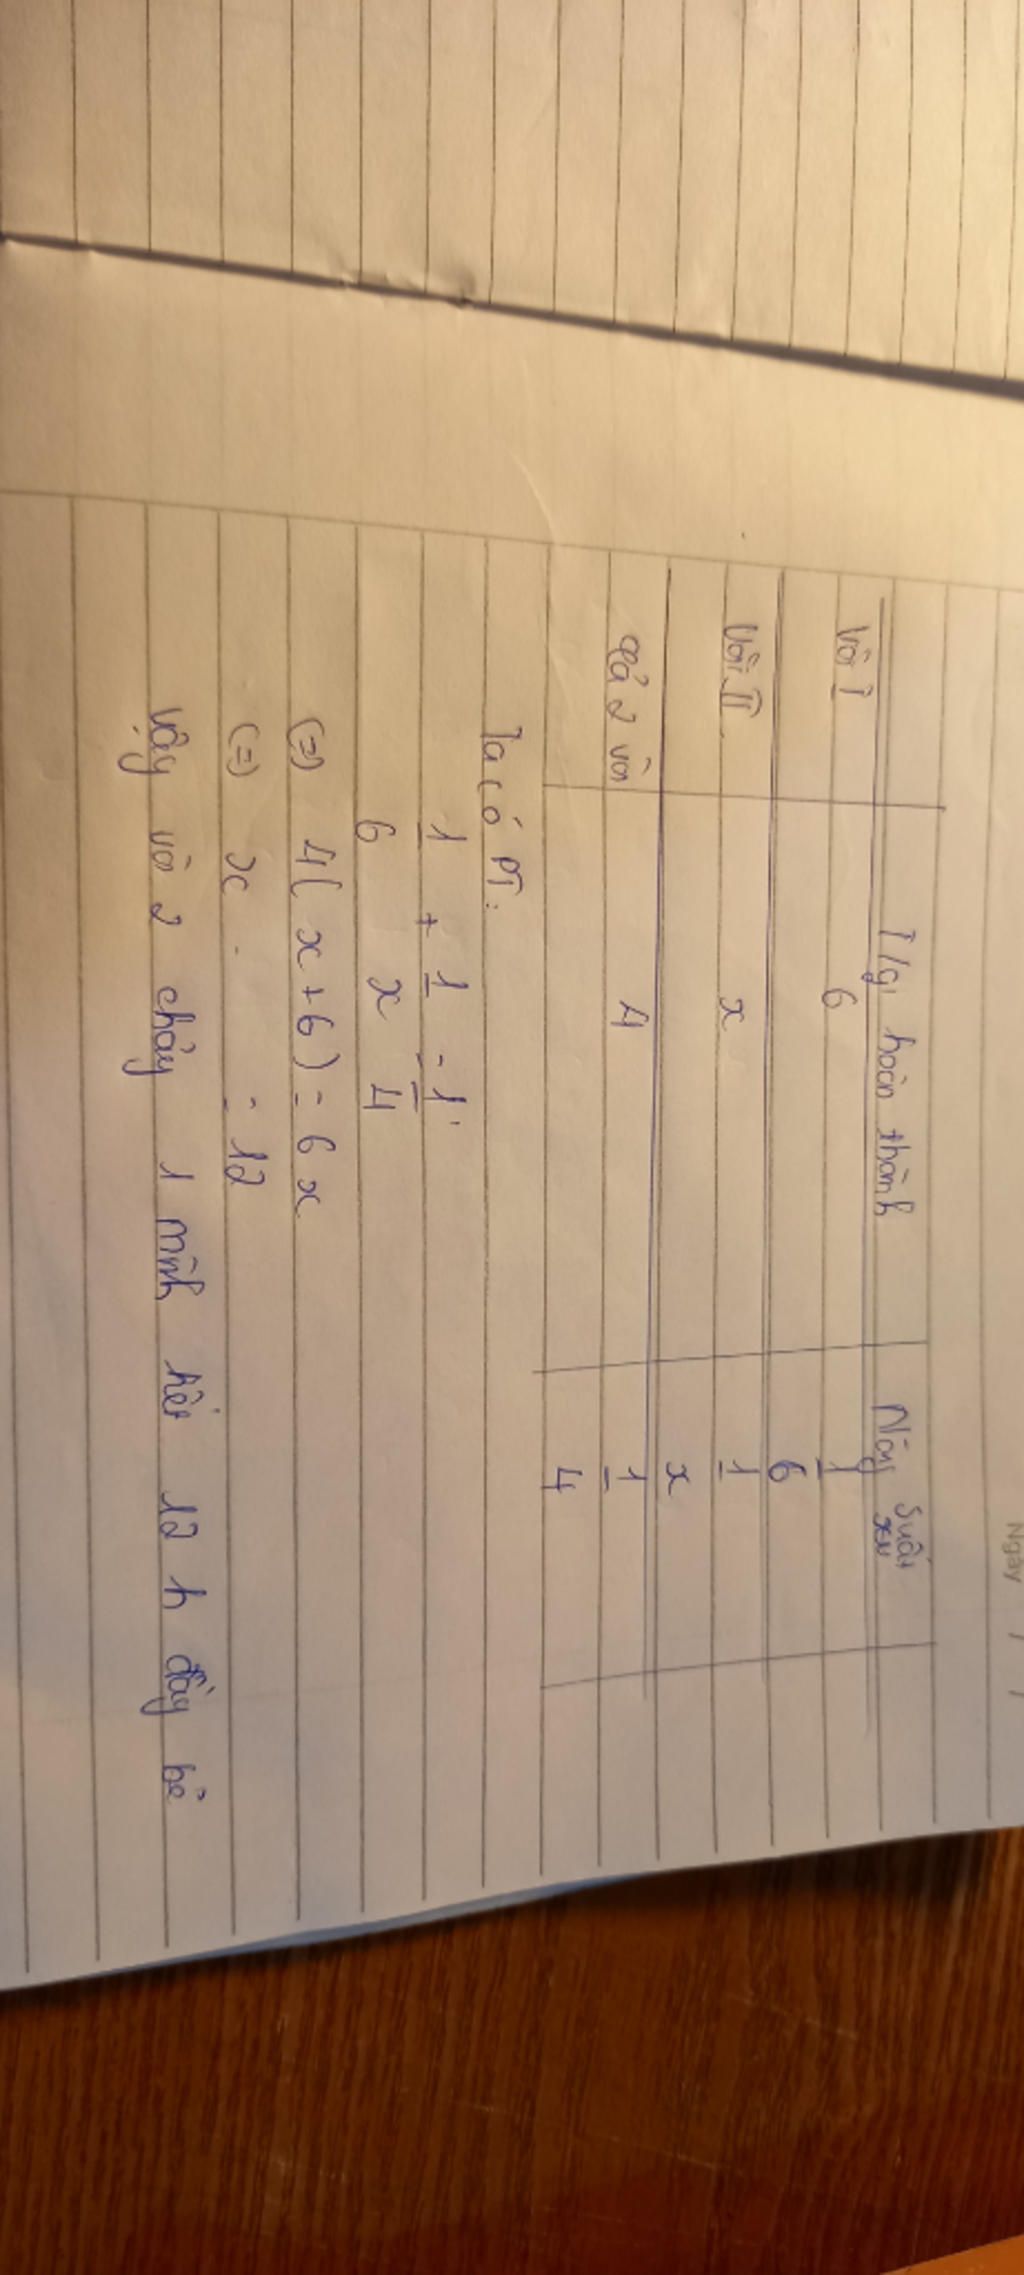 Ngày / /
T/gi hoàn thành Năng suất
Vòi I 6 1/6
Vòi II x 1/x
Cả 2 vòi 4 1/4
Ta có PT:
1/6 + 1/x = 1/4
(=) 4(x+6) = 6x
(=) x = 12
Vậy vòi 2 chảy 1 mình hết 12 h đầy bể